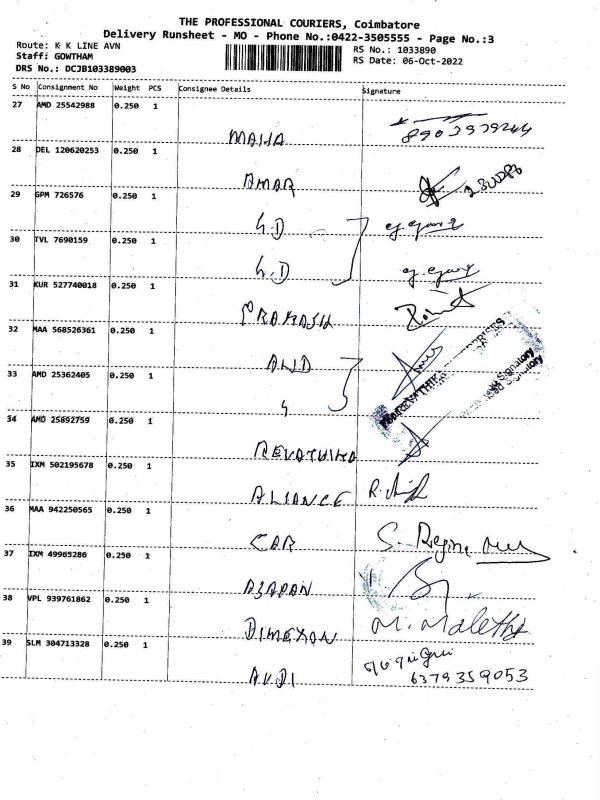 THE PROFESSIONAL COURIERS, Coimbatore
Delivery Runsheet - MO - Phone No.:0422-3505555 - Page No.:3
Route: K K LINE AVN
Staff: GOWTHAM
DRS No.: DCJB103389003
RS No.: 1033890
RS Date: 06-Oct-2022
S No Consignment No Weight PCS Consignee Details Signature
27 AMD 25542988 0.250 1
MAHA
28 DEL 120620253 0.250 1
AMAR
29 GPM 726576 0.250 1
G.D
30 TVL 7690159 0.250 1
G.D
31 KUR 527740018 0.250 1
PRAKASH
32 MAA 568526361 0.250 1
AND
33 AMD 25362405 0.250 1
34 AMD 25892759 0.250 1
35 IXM 502195678 0.250 1
ALIANCE
36 MAA 942250565 0.250 1
CAR S. Regina
37 IXM 49965286 0.250 1
38 VPL 939761862 0.250 1
DIMEXON M. Malethy
39 SLM 304713328 0.250 1
AUDI 6379359053